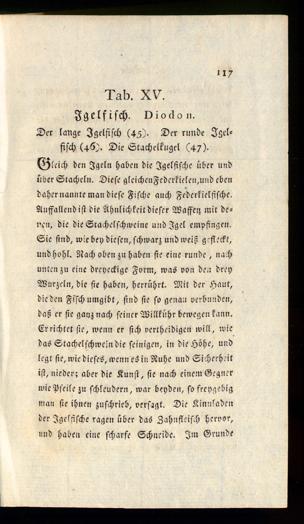 117
Tab. XV.
Igelfisch. Diodon.
Der lange Igelfisch (45). Der runde Igel-
fisch (46). Die Stachelkugel (47).
Gleich den Igeln haben die Igelfische über und
über Stacheln. Diese gleichen Federkielen, und eben
daher nannte man diese Fische auch Federkielfische.
Auffallend ist die Ähnlichkeit dieser Waffen mit de-
nen, die die Stachelschweine und Igel empfingen.
Sie sind, wie bey diesen, schwarz und weiß gefleckt,
und hohl. Nach oben zu haben sie eine runde, nach
unten zu eine dreyeckige Form, was von den drey
Wurzeln, die sie haben, herrührt. Mit der Haut,
die den Fisch umgibt, sind sie so genau verbunden,
daß er sie ganz nach seiner Willkühr bewegen kann.
Er richtet sie, wenn er sich vertheidigen will, wie
das Stachelschwein die seinigen, in die Höhe, und
legt sie, wie dieses, wenn es in Ruhe und Sicherheit
ist, nieder; aber die Kunst, sie nach einem Gegner
wie Pfeile zu schleudern, war beyden, so freygebig
man sie ihnen zuschrieb, versagt. Die Kinnladen
der Igelfische ragen über das Zahnfleisch hervor,
und haben eine scharfe Schneide. Im Grunde